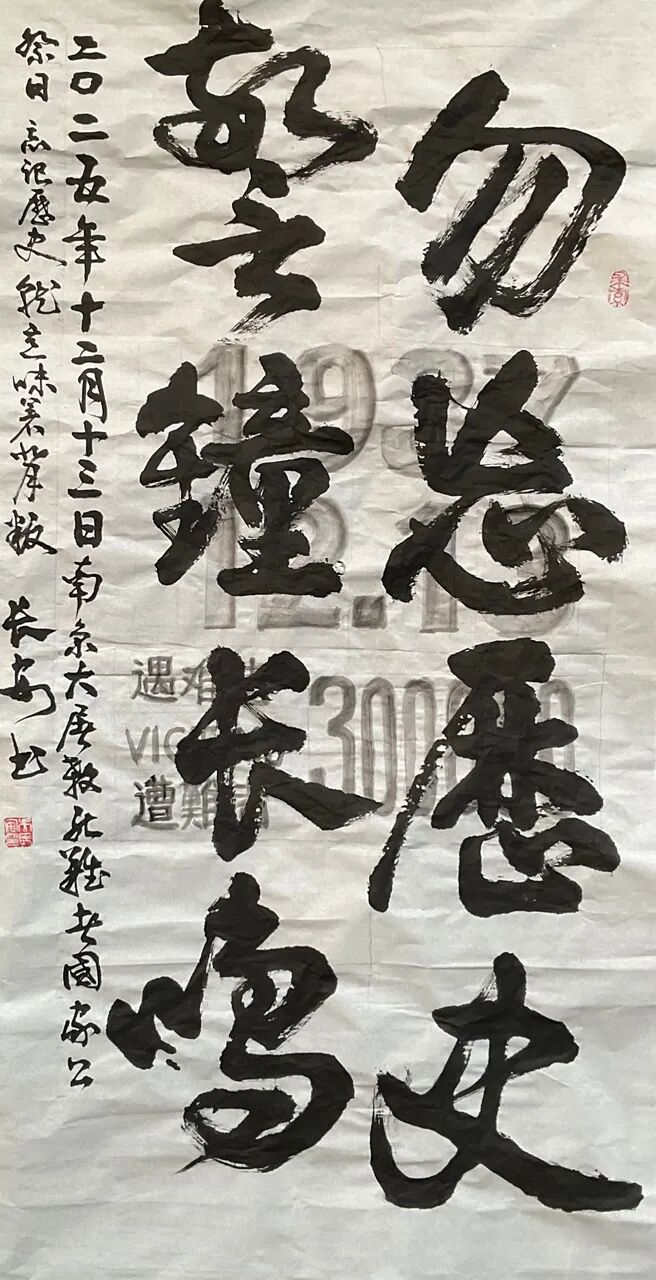 勿忘历史
警钟长鸣
二〇二五年十二月十三日南京大屠殺死難者國家公
祭日忘记歷史就意味着背叛
长安书
1937
12.13
遇难
VIC
300000
遭難